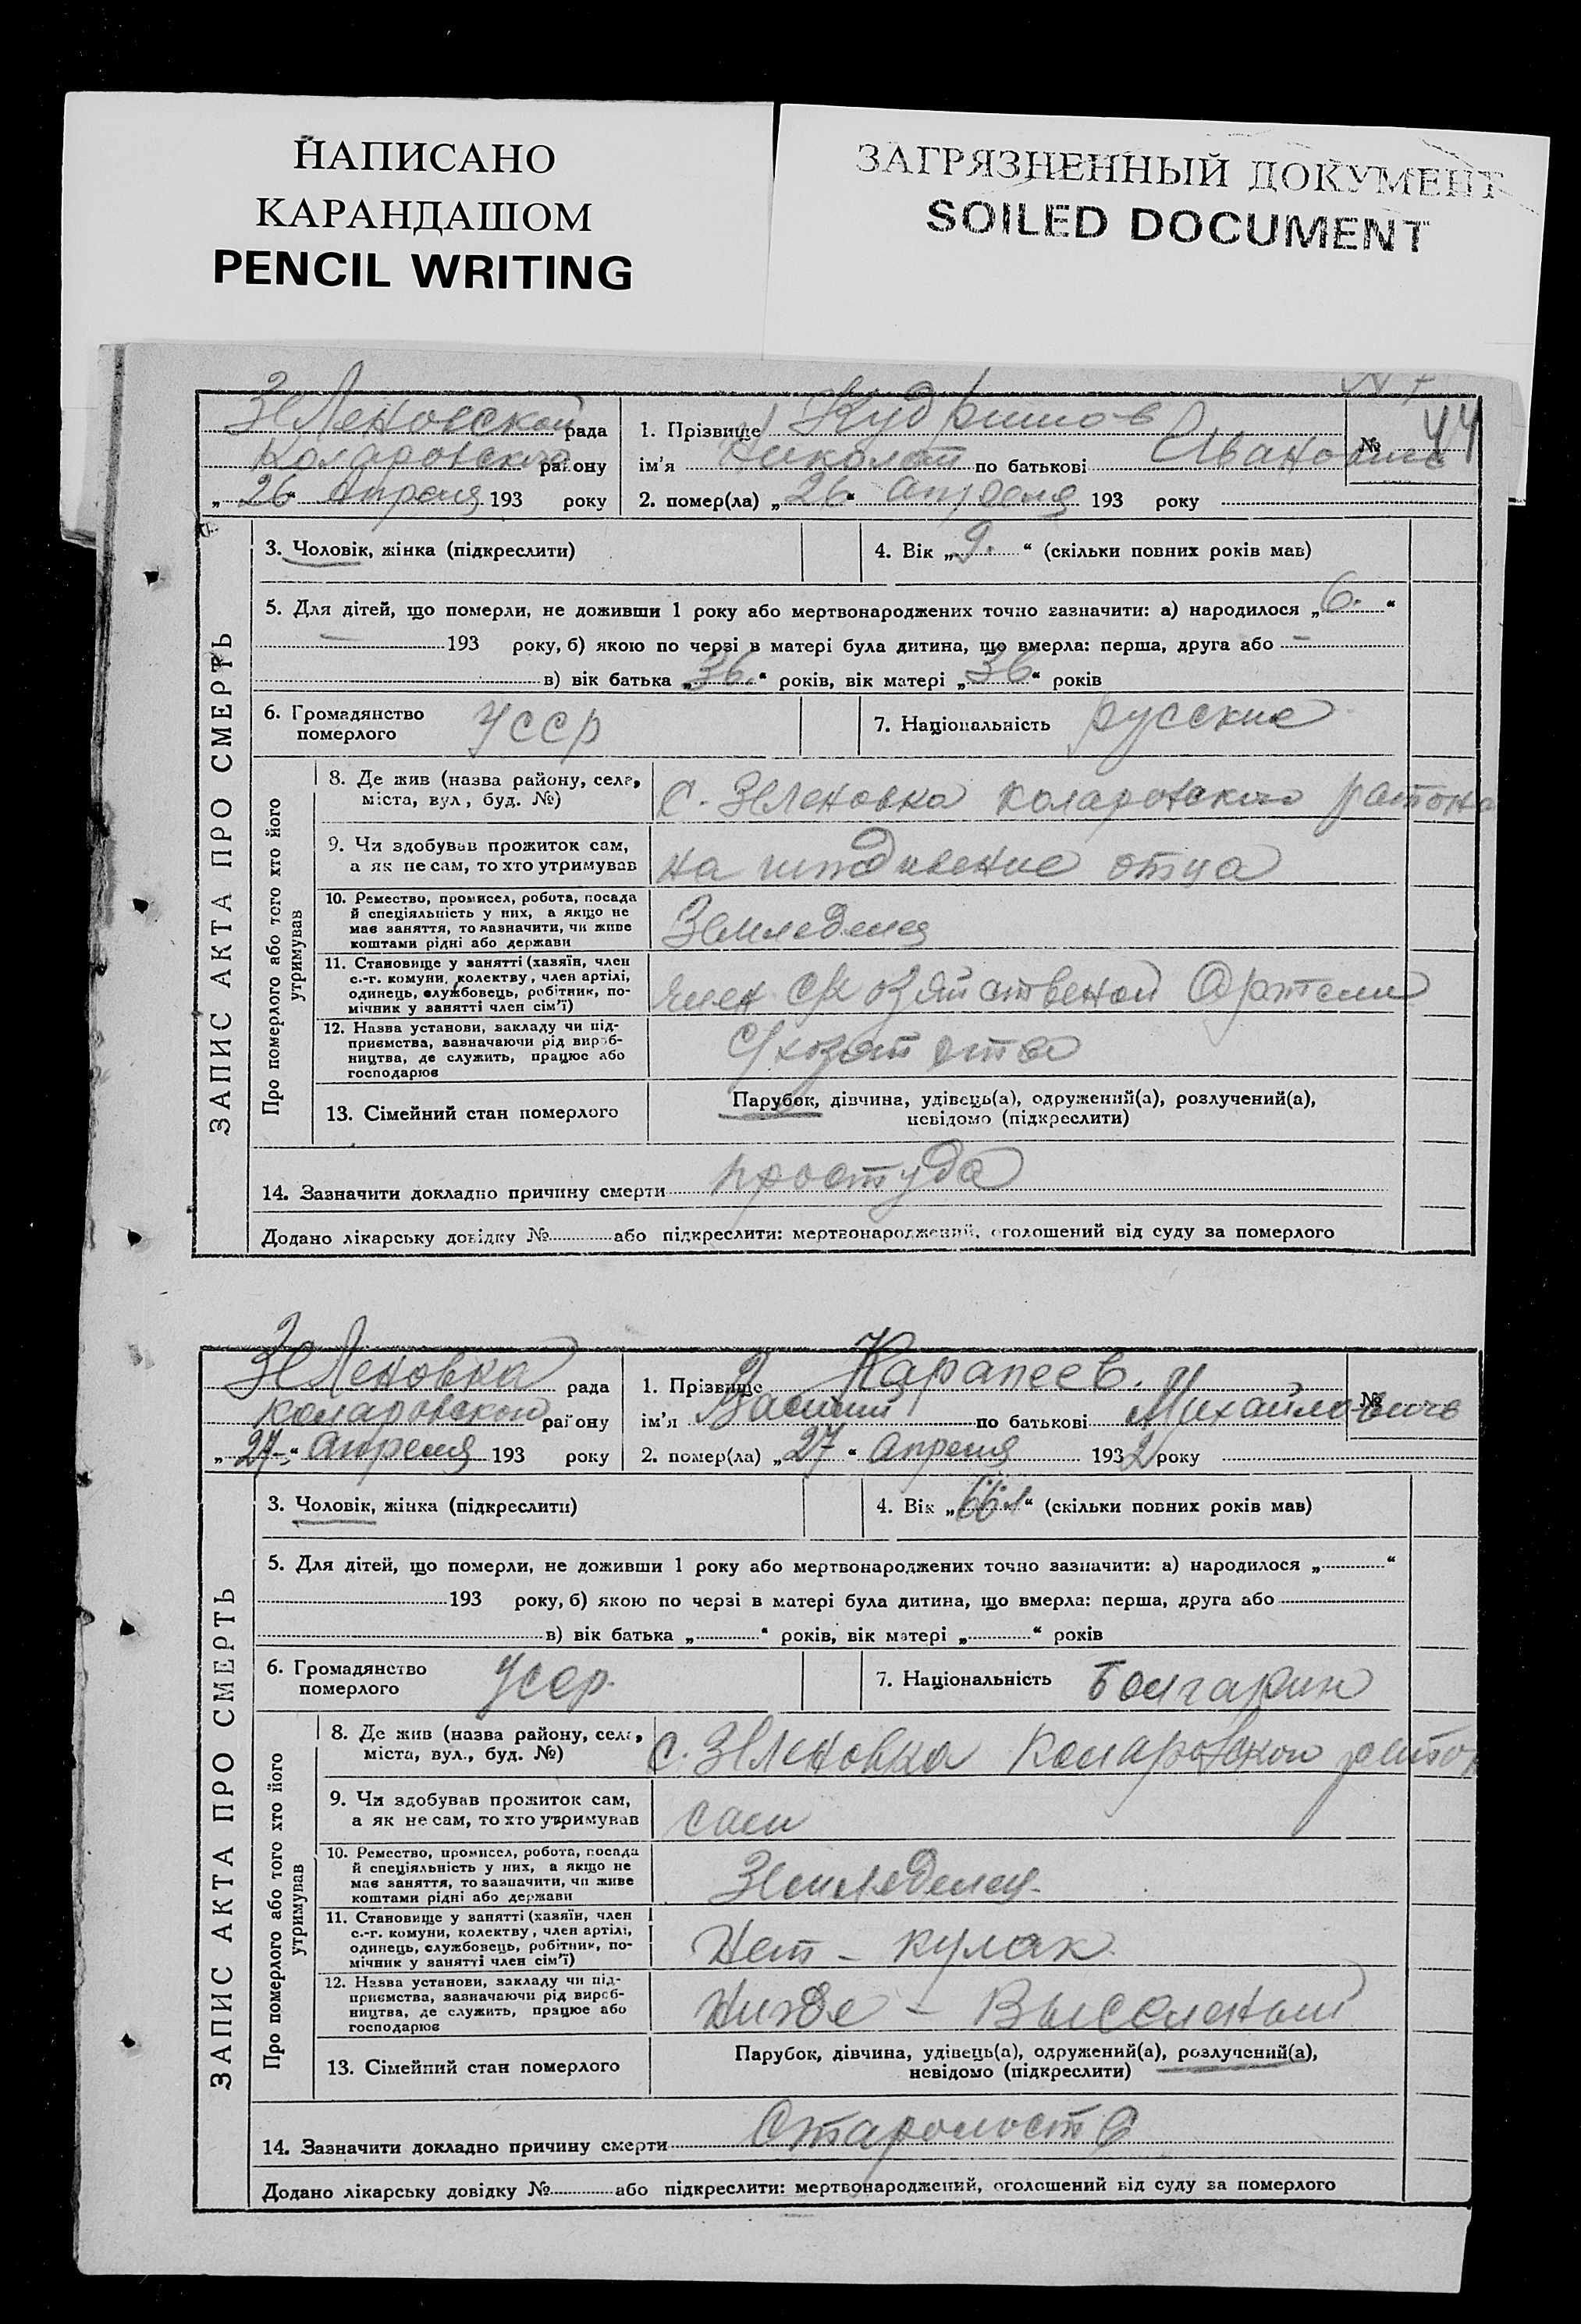 НАПИСАНО
КАРАНДАШОМ
PENCIL WRITING
ЗАГРЯЗНЕННЫЙ ДОКУМЕНТ
SOILED DOCUMENT
ЗАПИС АКТА ПРО СМЕРТЬ
Зеленовской рада
Коларовского району
„26“ Апреля 193 року
1. Прізвище Кудряшов
№ 44
ім'я Николай по батькові Иванович
2. помер(ла) „26“ апреля 193 року
3. Чоловік, жінка (підкреслити)
4. Вік „9.“ (скільки повних років мав)
5. Для дітей, що померли, не доживши 1 року або мертвонароджених точно зазначити: а) народилося „6.“
193 року, б) якою по черзі в матері була дитина, що вмерла: перша, друга або
в) вік батька „36.“ років, вік матері „36“ років
6. Громадянство померлого УССР
7. Національність русские
Про померлого або того хто його утримував
8. Де жив (назва району, села,
міста, вул., буд. №)
С. Зеленовка Коларовского района
9. Чи здобував прожиток сам,
а як не сам, то хто утримував
на иждивение отца
10. Ремество, промисел, робота, посада
й спеціяльність у них, а якщо не
має заняття, то зазначити, чи живе
коштами рідні або держави
Земледелец
11. Становище у занятті (хазяїн, член
с.-г. комуни, колективу, член артілі,
одинець, службовець, робітник, по-
мічник у занятті член сім'ї)
член С/х озяйственой Артели
12. Назва установи, закладу чи під-
приємства, зазначаючи рід вироб-
ництва, де служить, працює або
господарює
С/хозяйство
13. Сімейний стан померлого
Парубок, дівчина, удівець(а), одружений(а), розлучений(а),
невідомо (підкреслити)
14. Зазначити докладно причину смерти простуда
Додано лікарську довідку № або підкреслити: мертвонароджений, оголошений від суду за померлого
ЗАПИС АКТА ПРО СМЕРТЬ
Зеленовка рада
Коларовской району
„27“ апреля 193 року
1. Прізвище Карапеев.
№
ім'я Василий по батькові Михайлович
2. помер(ла) „27“ апреля 1932 року
3. Чоловік, жінка (підкреслити)
4. Вік „66“ (скільки повних років мав)
5. Для дітей, що померли, не доживши 1 року або мертвонароджених точно зазначити: а) народилося „ “
193 року, б) якою по черзі в матері була дитина, що вмерла: перша, друга або
в) вік батька „ “ років, вік матері „ “ років
6. Громадянство померлого Усср.
7. Національність Болгарин
Про померлого або того хто його утримував
8. Де жив (назва району, села,
міста, вул., буд. №)
С. Зеленовка Коларовской район
9. Чи здобував прожиток сам,
а як не сам, то хто утримував
сам
10. Ремество, промисел, робота, посада
й спеціяльність у них, а якщо не
має заняття, то зазначити, чи живе
коштами рідні або держави
Земледелец.
11. Становище у занятті (хазяїн, член
с.-г. комуни, колективу, член артілі,
одинець, службовець, робітник, по-
мічник у занятті член сім'ї)
Нет - кулак.
12. Назва установи, закладу чи під-
приємства, зазначаючи рід вироб-
ництва, де служить, працює або
господарює
Нигде - Высоленый
13. Сімейний стан померлого
Парубок, дівчина, удівець(а), одружений(а), розлучений(а),
невідомо (підкреслити)
14. Зазначити докладно причину смерти Старолость
Додано лікарську довідку № або підкреслити: мертвонароджений, оголошений від суду за померлого